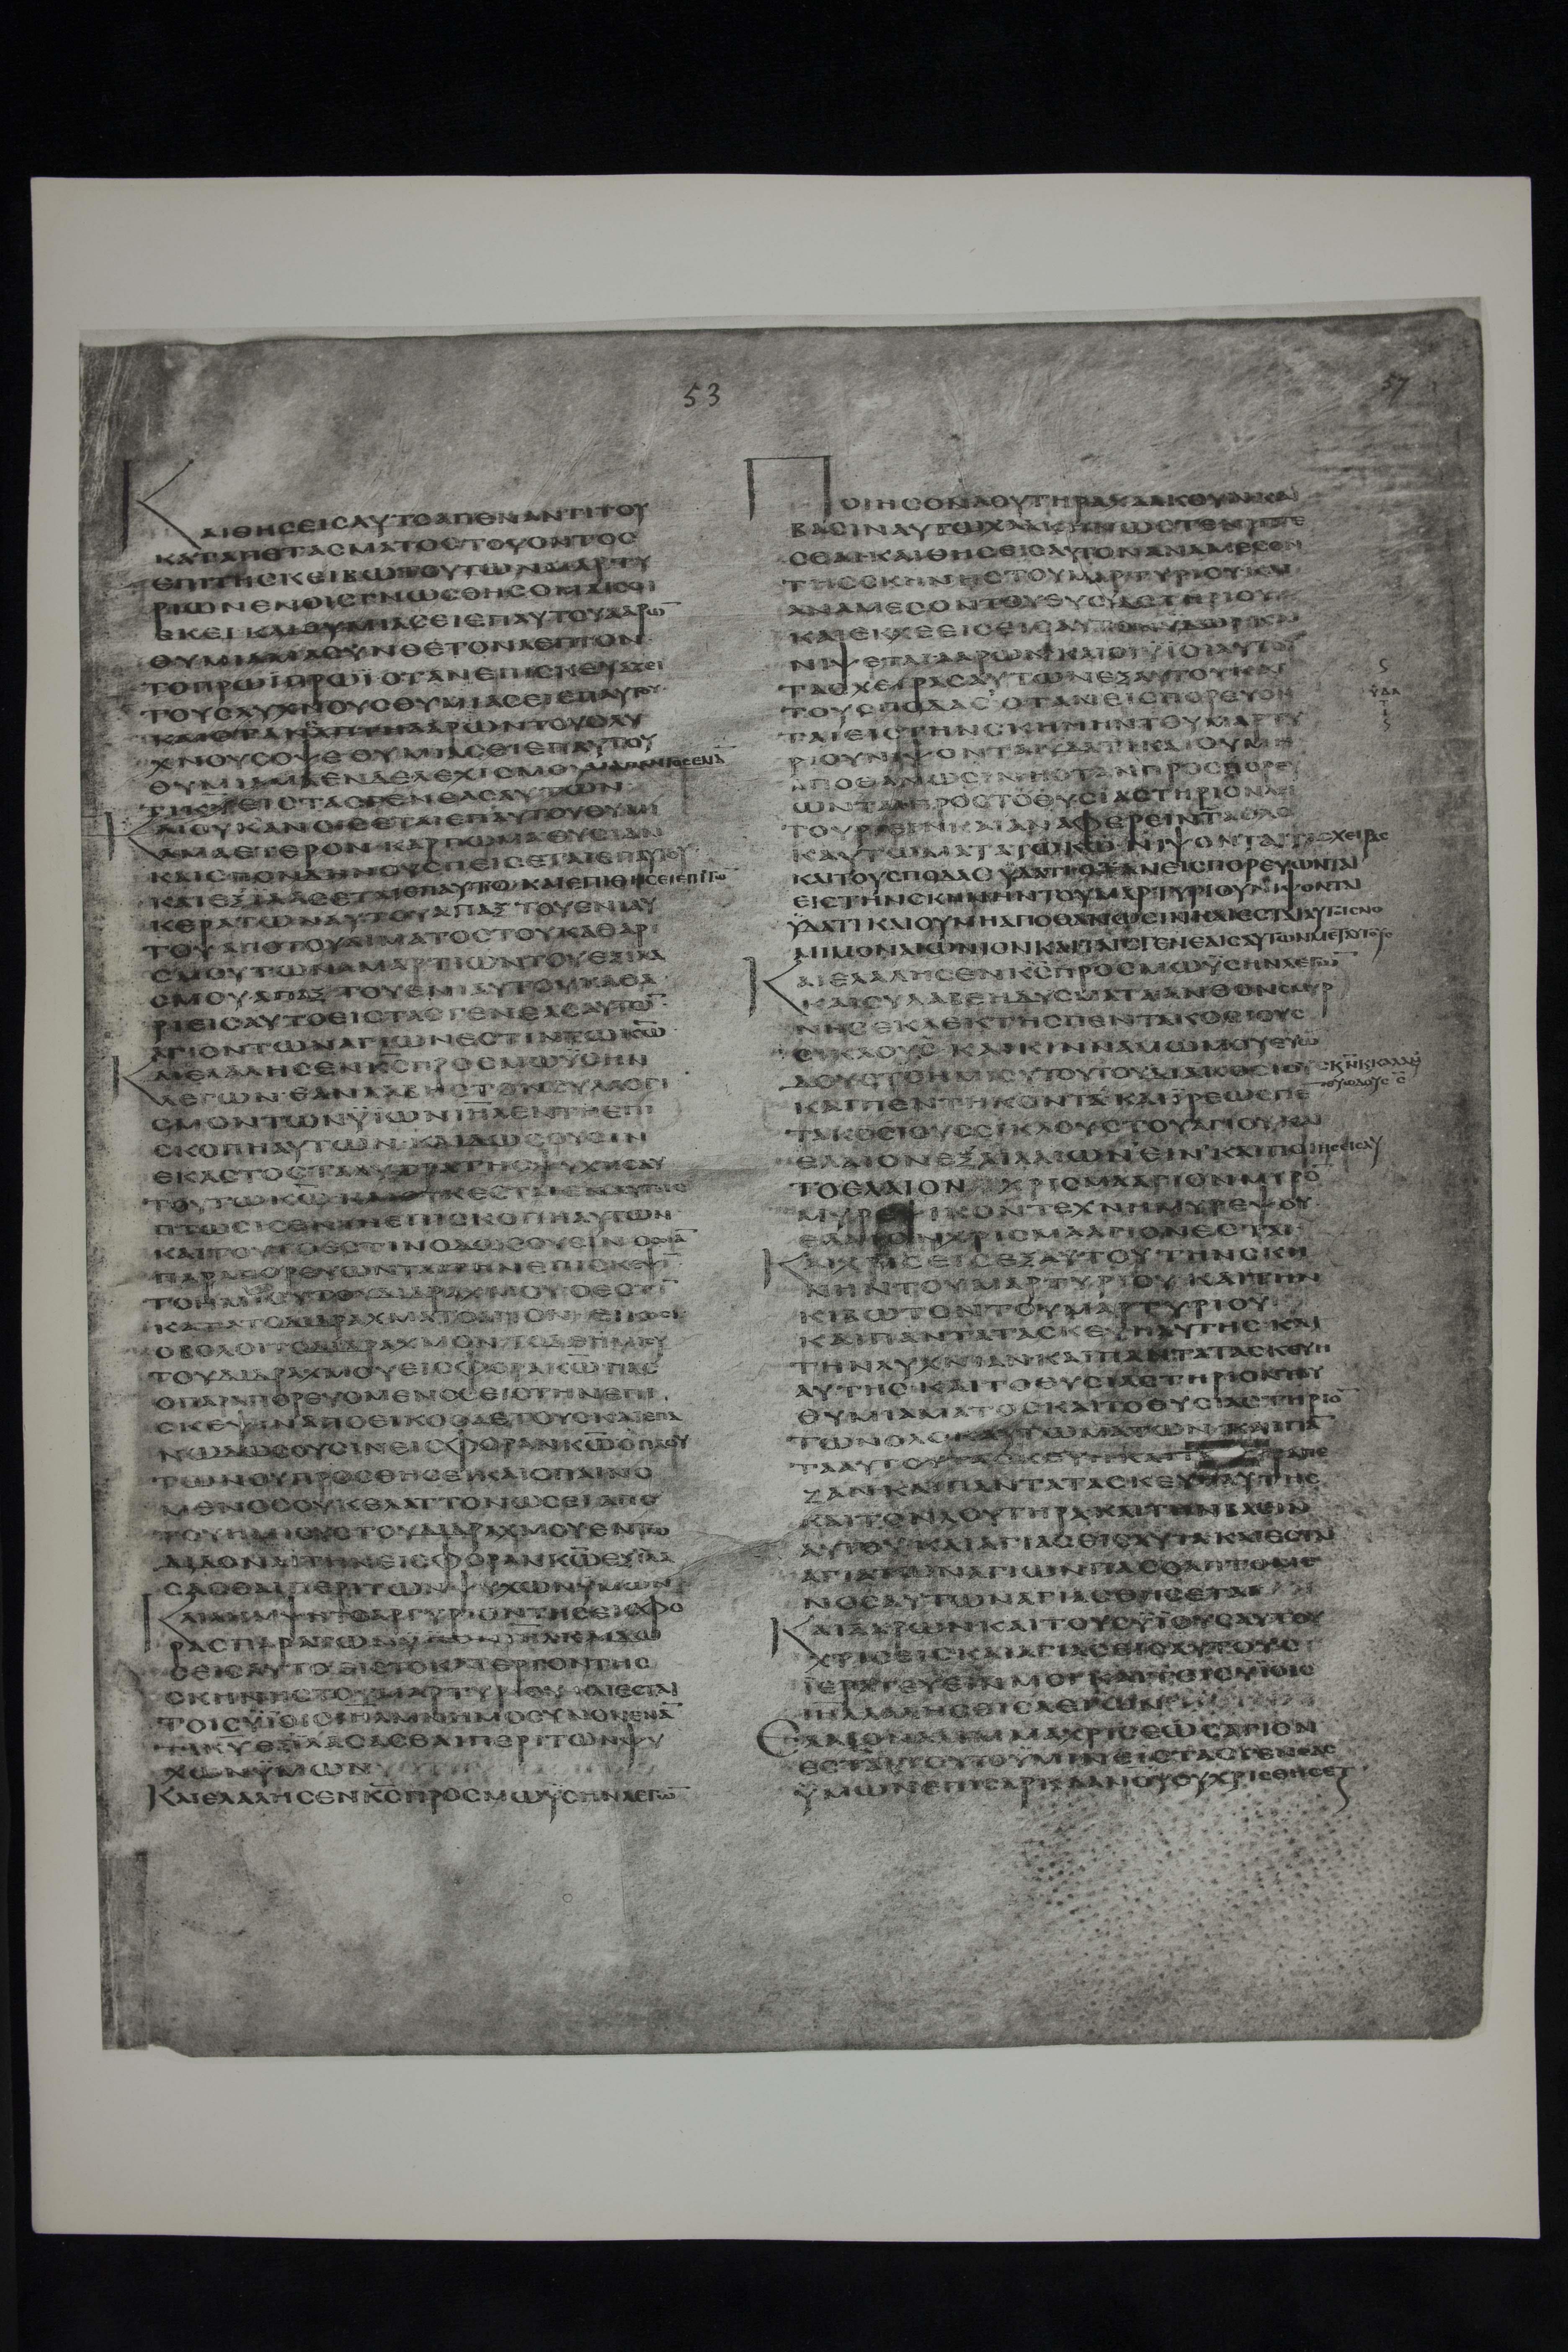 53
57
ΚΑΙΘΗСΕΙСΑΥΤΟΑΠΕΝΑΝΤΙΤΟΥ
ΚΑΤΑΠΕΤΑСΜΑΤΟСΤΟΥΟΝΤΟС
ΕΠΙΤΗСΚΕΙΒΩΤΟΥΤΩΝΜΑΡΤΥ
ΡΙΩΝΕΝΟΙСΓΝΩСΘΗСΟΜΑΙСΟΙ
ΕΚΕΙΚΑΙΘΥΜΙΑСΕΙΕΠΑΥΤΟΥΑΑΡΩ̅
ΘΥΜΙΑΜΑСΥΝΘΕΤΟΝΛΕΠΤΟΝ
ΤΟΠΡΩΪΠΡΩΪΟΤΑΝΕΠΙСΚΕΥΑΖΕΙ
ΤΟΥСΛΥΧΝΟΥСΘΥΜΙΑСΕΙΕΠΑΥΤΟΥ
ΚΑΙΟΤΑΝΕΞΑΠΤΗΑΑΡΩΝΤΟΥСΛΥ
ΧΝΟΥСΟΨΕΘΥΜΙΑСΕΙΕΠΑΥΤΟΥ
ΘΥΜΙΑΜΑΕΝΔΕΛΕΧΙСΜΟΥΔΙΑΠΑΝΤΟСΕΝΑ̅
ΤΙΚ̅Υ̅ΕΙСΤΑСΓΕΝΕΑСΑΥΤΩΝ
ΚΑΙΟΥΚΑΝΟΙСΕΤΑΙΕΠΑΥΤΟΥΘΥΜΙ
ΑΜΑΕΤΕΡΟΝ·ΚΑΡΠΩΜΑΘΥСΙΑΝ
ΚΑΙСΠΟΝΔΗΝΟΥСΠΕΙСΕΤΑΙΕΠΑΥΤΟΥ
ΚΑΙΕΞΪΛΑСΕΤΑΙΕΠΑΥΤΟ·ΚΑΙΕΠΙΘΗСΕΙΕΠΙΤΩ̅
ΚΕΡΑΤΩΝΑΥΤΟΥΑΠΑΞΤΟΥΕΝΙΑΥ
ΤΟΥΑΠΟΤΟΥΑΙΜΑΤΟСΤΟΥΚΑΘΑΡΙ
СΜΟΥΤΩΝΑΜΑΡΤΙΩΝΤΟΥΕΞΙΛΑ
СΜΟΥ·ΑΠΑΞΤΟΥΕΝΙΑΥΤΟΥΚΑΘΑ
ΡΙΕΙСΑΥΤΟΕΙСΤΑСΓΕΝΕΑСΑΥΤΩ̅
ΑΓΙΟΝΤΩΝΑΓΙΩΝΕСΤΙΝΤΩΚ̅Ω̅
ΚΑΙΕΛΑΛΗСΕΝΚ̅С̅ΠΡΟСΜΩΥСΗΝ
ΛΕΓΩΝ·ΕΑΝΛΑΒΗСΤΟΝСΥΛΛΟΓΙ
СΜΟΝΤΩΝΫΙΩΝΙ̅Η̅Λ̅ΕΝΤΗΕΠΙ
СΚΟΠΗΑΥΤΩΝ·ΚΑΙΔΩСΟΥСΙΝ
ΕΚΑСΤΟСΤΑΛΥΤΡΑΤΗСΨΥΧΗСΑΥ
ΤΟΥΤΩΚ̅Ω̅ΚΑΙΟΥΚΕСΤΑΙΕΝΑΥΤΟΙС
ΠΤΩСΙСΕΝΤΗΕΠΙСΚΟΠΗΑΥΤΩΝ
ΚΑΙΤΟΥΤΟΕСΤΙΝΟΔΩСΟΥСΙΝΟСΟΙΑ̅
ΠΑΡΑΠΟΡΕΥΩΝΤΑΙΤΗΝΕΠΙСΚΕΨΙ̅
ΤΟΗΜΙСΥΤΟΥΔΙΔΡΑΧΜΟΥΟΕСΤΙ̅
ΚΑΤΑΤΟΔΙΔΡΑΧΜΑΤΟΑΓΙΟΝ·ΕΙΚΟСΙ
ΟΒΟΛΟΙΤΟΔΙΔΡΑΧΜΟΝ·ΤΟΔΕΗΜΙСΥ
ΤΟΥΔΙΔΡΑΧΜΟΥΕΙСΦΟΡΑΚ̅Ω̅ΠΑС
ΟΠΑΡΑΠΟΡΕΥΟΜΕΝΟСΕΙСΤΗΝΕΠΙ
СΚΕΨΙΝΑΠΟΕΙΚΟСΑΕΤΟΥСΚΑΙΕΠΑ
ΝΩΔΩСΟΥСΙΝΕΙСΦΟΡΑΝΚ̅Ω̅ΟΠΛΟΥ
ΤΩΝΟΥΠΡΟСΘΗСΕΙΚΑΙΟΠΑΙΝΟ
ΜΕΝΟСΟΥΚΕΛΑΤΤΟΝΩСΕΙΑΠΟ
ΤΟΥΗΜΙСΟΥСΤΟΥΔΙΔΡΑΧΜΟΥΕΝΤΩ
ΔΙΔΟΝΑΙΤΗΝΕΙСΦΟΡΑΝΚ̅Ω̅ΕΞΪΛΑ
СΑСΘΑΙΠΕΡΙΤΩΝΨΥΧΩΝΫΜΩΝ
ΚΑΙΛΗΜΨΗΤΟΑΡΓΥΡΙΟΝΤΗСΕΙСΦΟ
ΡΑСΠΑΡΑΤΩΝΫΙΩΝΙ̅Η̅Λ̅ΚΑΙΔΩ
СΕΙСΑΥΤΟΕΙСΤΟΚΑΤΕΡΓΟΝΤΗС
СΚΗΝΗСΤΟΥΜΑΡΤΥΡΙΟΥ·ΚΑΙΕСΤΑΙ
ΤΟΙСΫΪΟΙСΙ̅Η̅Λ̅ΜΝΗΜΟСΥΝΟΝΕΝΑ̅
ΤΙΚ̅Υ̅ΕΞΪΛΑСΑСΘΑΙΠΕΡΙΤΩΝΨΥ
ΧΩΝΫΜΩΝ
ΚΑΙΕΛΑΛΗСΕΝΚ̅С̅ΠΡΟСΜΩΫСΗΝΛΕΓΩ̅
ΠΟΙΗСΟΝΛΟΥΤΗΡΑΧΑΛΚΟΥΝΚΑΙ
ΒΑСΙΝΑΥΤΩΧΑΛΚΗΝΩСΤΕΝΙΠΤΕ
СΘΑΙ·ΚΑΙΘΗСΕΙСΑΥΤΟΝΑΝΑΜΕСΟΝ
ΤΗССΚΗΝΗСΤΟΥΜΑΡΤΥΡΙΟΥΚΑΙ
ΑΝΑΜΕСΟΝΤΟΥΘΥСΙΑСΤΗΡΙΟΥ
ΚΑΙΕΚΧΕΕΙСΕΙСΑΥΤΟΝΥΔΩΡΚΑΙ
ΝΙΨΕΤΑΙΑΑΡΩΝΚΑΙΟΙΫΙΟΙΑΥΤΟΥ
ΤΑСΧΕΙΡΑСΑΥΤΩΝΕΞΑΥΤΟΥΚΑΙ
ΤΟΥСΠΟΔΑС·ΟΤΑΝΕΙСΠΟΡΕΥΩΝ
ΤΑΙΕΙСΤΗΝСΚΗΝΗΝΤΟΥΜΑΡΤΥ
ΡΙΟΥΝΙΨΟΝΤΑΙΥΔΑΤΙΚΑΙΟΥΜΗ
ΑΠΟΘΑΝΩСΙΝΗΟΤΑΝΠΡΟСΠΟΡΕΥ
ΩΝΤΑΙΠΡΟСΤΟΘΥСΙΑСΤΗΡΙΟΝΛΕΙ
ΤΟΥΡΓΕΙΝΚΑΙΑΝΑΦΕΡΕΙΝΤΑΟΛΟ
ΚΑΥΤΩΜΑΤΑΤΩΚ̅Ω̅·ΝΙΨΟΝΤΑΙΤΑСΧΕΙΡΑС
ΚΑΙΤΟΥСΠΟΔΑСΫΔΑΤΙΟΤΑΝΕΙСΠΟΡΕΥΩΝΤΑΙ
ΕΙСΤΗΝСΚΗΝΗΝΤΟΥΜΑΡΤΥΡΙΟΥΝΙΨΟΝΤΑΙ
ΫΔΑΤΙΚΑΙΟΥΜΗΑΠΟΘΑΝΩСΙΝΚΑΙΕСΤΑΙΑΥΤΟΙСΝΟ
ΜΙΜΟΝΑΙΩΝΙΟΝΚΑΙΤΑΙСΓΕΝΕΑΙСΑΥΤΩΝΜΕΤΑΥΤΟ̅
ΚΑΙΕΛΑΛΗСΕΝΚ̅С̅ΠΡΟСΜΩΫСΗΝΛΕΓΩ̅
ΚΑΙСΥΛΑΒΕΗΔΥСΜΑΤΑΑΝΘΟΝСΜΥΡ
ΝΗСΕΚΛΕΚΤΗСΠΕΝΤΑΚΟСΙΟΥС
СΙΚΛΟΥС·ΚΑΙΚΙΝΝΑΜΩΜΟΥΕΥΩ
ΔΟΥСΤΟΗΜΙСΥΤΟΥΤΟΥΔΙΑΚΟСΙΟΥС
ΚΑΙΠΕΝΤΗΚΟΝΤΑ·ΚΑΙΪΡΕΩСΠΕ̅
ΤΑΚΟСΙΟΥССΙΚΛΟΥСΤΟΥΑΓΙΟΥΚΑΙ
ΕΛΑΙΟΝΕΞΑΙΛΑΙΩΝΕΙΝ·ΚΑΙΠΟΙΗСΕΙСΑΥ
ΤΟΕΛΑΙΟΝΧΡΙСΜΑΑΓΙΟΝΜΥΡΟ̅
ΜΥΡΕΨΙΚΟΝΤΕΧΝΗΜΥΡΕΨΟΥ
ΕΛΑΙΟΝΧΡΙСΜΑΑΓΙΟΝΕСΤΑΙ
ΚΑΙΧΡΙСΕΙСΕΞΑΥΤΟΥΤΗΝСΚΗ
ΝΗΝΤΟΥΜΑΡΤΥΡΙΟΥΚΑΙΤΗΝ
ΚΙΒΩΤΟΝΤΟΥΜΑΡΤΥΡΙΟΥ
ΚΑΙΠΑΝΤΑΤΑСΚΕΥΗΑΥΤΗС·ΚΑΙ
ΤΗΝΛΥΧΝΙΑΝΚΑΙΠΑΝΤΑΤΑСΚΕΥΗ
ΑΥΤΗС·ΚΑΙΤΟΘΥСΙΑСΤΗΡΙΟΝΤΟΥ
ΘΥΜΙΑΜΑΤΟСΚΑΙΤΟΘΥСΙΑСΤΗΡΙΟ̅
ΤΩΝΟΛΟΚΑΥΤΩΜΑΤΩΝΚΑΙΠΑ̅
ΤΑΑΥΤΟΥΤΑСΚΕΥΗΚΑΙΤ ΤΡΑΠΕ
ΖΑΝΚΑΙΠΑΝΤΑΤΑСΚΕΥΗΑΥΤΗС
ΚΑΙΤΟΝΛΟΥΤΗΡΑΚΑΙΤΗΝΒΑСΙΝ
ΑΥΤΟΥΚΑΙΑΓΙΑСΕΙСΑΥΤΑΚΑΙΕСΤΑΙ
ΑΓΙΑΤΩΝΑΓΙΩΝΠΑСΟΑΠΤΟΜΕ
ΝΟСΑΥΤΩΝΑΓΙΑСΘΗСΕΤΑΙ
ΚΑΙΑΑΡΩΝΚΑΙΤΟΥСΫΪΟΥСΑΥΤΟΥ
ΧΡΙСΕΙСΚΑΙΑΓΙΑСΕΙСΑΥΤΟΥС
ΙΕΡΑΤΕΥΕΙΝΜΟΙΚΑΙΤΟΙСΥΪΟΙС
Ι̅Η̅Λ̅ΛΑΛΗСΕΙСΛΕΓΩΝ
ΕΛΑΙΟΝΑΛΙΜΜΑΧΡΙСΕΩСΑΓΙΟΝ
ΕСΤΑΙΤΟΥΤΟΫΜΙΝΕΙСΤΑСΓΕΝΕΑС
ΫΜΩΝΕΠΙСΑΡΚΑΑΝΟΥΟΥΧΡΙСΘΗСΕΤ